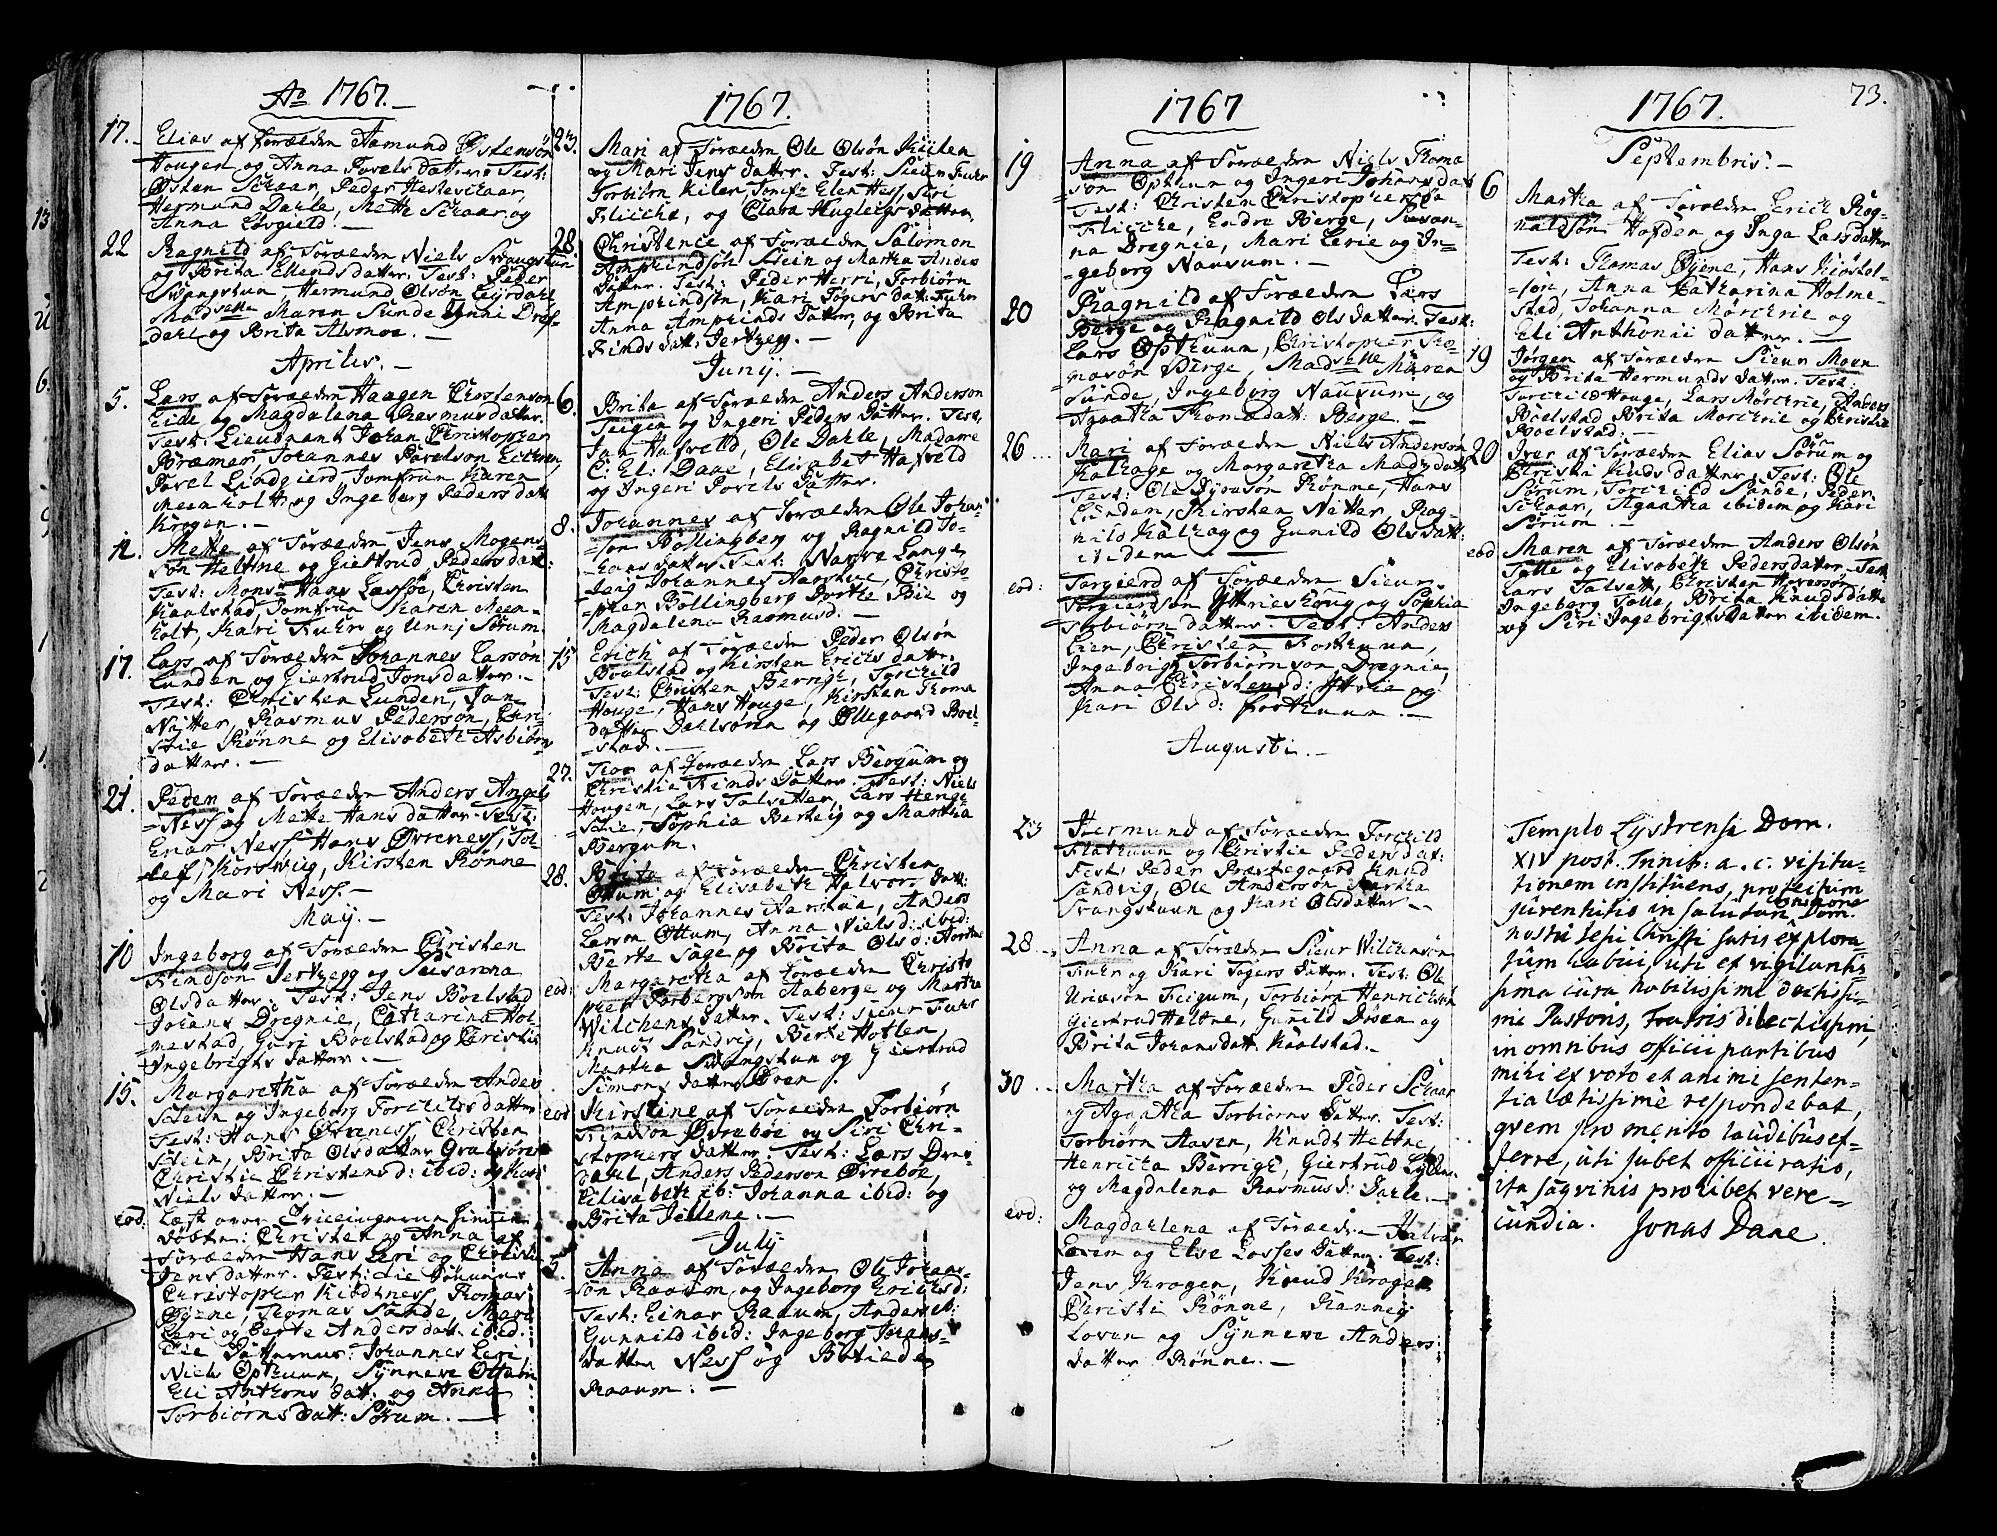 Ao 1767.
17. Elias af Forældre Aamund Østensøn
Hougen og Anna Povels datter Test:
Østen Schaar, Peder Hesteschaar,
Hermund Dahle, Mette Schaar og
Anna Løvgield. —
22 Ragnild af Forældre Niels Svangstun
og Brita Ellends datter. Test: Peder
Svangstun Hermund Olsøn Lyrdahl
Madselle Maren Sunde Unni Dres-
dahl og Brita Alsmoe. —
Aprilis. —
5. Lars af Forældre Haagen Christenson
Eide og Magdalena Rasmusdatter.
Test: Lieudnant Johan Christopher
Bræmer, Johannes Povelson
Povel Lindgierd Jomfrue Karen
Meenholt og Ingeborg Peders datt
Krogen. —
12. Mette af Forældre Jens Mogens-
søn Heltne og Giertrud Peders datt:
Test: Mons: Hans Lassøe, Christen
Kaalstad Jomfrue Karen Meen-
holt, Kari Fuhr og Unnj Sørum.
17. Lars af Forældre Johannes Larsøn
Lunden og Giertrud Jonsdatter. —
Test: Christen Lunden, Jan
Natter, Rasmus Pederson, Chri-
stie Rønne og Elisabeth Asbiørns
datter. —
21. Peder af Forældre Anders Angels
Ness og Mette Hans datter Test:
Enar Ness Hans Øvreness, Tol-
lef Korsvig, Kirsten Rønne
og Mari Ness. —
May. —
10 Ingeborg af Forældre Christen
Findsøn Jertzegg og Susanna
Olsdatter. Test: Jens Boelstad
Johans Dregnie, Catharina Hol-
mestad, Guri Boelstad og Christie
Ingebrigts datter. —
15. Margaretha af Forældre Anders
Stein og Ingeborg Torchilds datter
Test: Hans Øvreness, Christen
Stein, Brita Olsdatter
Christie Christensd: ibid: og Kari
Niels datter. —
eod: Læst over Trillingerne
døbte: Christen og Anna af
Forældre Hans Leri og Christie
Jensdatter. Test:
Christopher Thomas
Øyene, Thomas Sunde, Mari
Leri og Berte Andersdatt. ibid:
Johannes Leri
Niels Opthuun, Synneve Ottum
Eli Anthons datt: og Anna
Torbiørns datt: Sørum. —
1767.
23. Mari af Forældre Ole Olsøn Kiilen
og Mari Jens datter. Test: Sieur Fuhr
Torbiørn Kilen Jomf: Elen Hess, Siri
Fliche, og Clara Huglegs datter
28. Christence af Forældre Salomon
Amphindsøn Stein og Martha Anders
datter. Test: Peder Herri, Torbiørn
Amphindsøn, Kari Togers datt: Fuhr
Anna Amphinds datter, og Brita
Finds datt: Jertzegg. —
Juny. —
6. Brita af Forældre Anders Anderson
Teigen og Ingeri Peders datter. Test:
Jan Hafveld, Ole Dahle, Madame
C: El: Dane, Elisabet Hafveld
og Ingeri Povels Datter.
8. Johannes af Forældre Ole Johan-
søn Bollingberg og Ragnild To-
Test: Narve Lange
Johannes Aarstue, Christo-
pher Bollingberg Dorthe Bie og
Magdalena Rasmusd: —
15 Erich af Forældre Peder Olsøn
Boelstad og Kirsten Erichs datter.
Test: Christen Berrige, Torchild
Houge, Hans Houge, Kirsten Thoma
datter Dahlsøren og Ollegaard Boel-
stad. —
27. af Forældre Lars Bergum og
Christie Finds datter. Test: Niels
Hougen, Lars Talsetter, Lars Henge-
Sophia Berheig og Martha
Bergum.
28. Brita af Forældre Christen
Ottum og Elisabeth Halvors datt:
Test: Johannes Aarstue, Anders
Larsøn Ottum, Anna Nielsd: ibid:
Berte Sage og Brita Olsd: Aarstue
eod: Margaretha af Forældre Christo
pher Torbergsøn Aaberge og Martha
Wilchens datter. Test: Sieur Fuhr
Knud Sandvig, Berte Hotlen,
Martha Svangstun og Giertrud
Simons datter Øren.
eod Kirstine af Forældre Torbiørn
Findson Øvrebøe og Siri Chri-
stophers datter. Test: Lars Dres-
dahl, Anders Pederson Øvrebøe,
Elisabeth ib: Johanna ibid: og
Brita Jellene. —
July
5. Anna af Forældre Ole Johans-
søn Raaum og Ingeborg Erichsd:
Test: Einar Raaum, Anders ib:
Gunnild ibid: Ingeborg Johans-
datter Ness og Botilde
Raaum: —
1767
19 Anna af Forældre Niels Thoma
søn Opthun og Ingeri Johans datt
Test: Christen Christophersøn
Fliche, Endre Berge, Susan-
na Dregnie, Mari Lerie og In-
geborg Nausum. —
20 Ragnild af Forældre Lars
Berge og Ragnild Olsdatter. Test:
Lars Opthuun, Christopher Tho-
masøn Berge, Madselle Maren
Sunde, Ingeborg Nausum, og
Agatha Thomsdatt: Berge. —
26 Mari af Forældre Niels Andersøn
Kalhage og Margaretha Mads datt
Test: Ole Rønne, Hans
Lunden, Kirsten Natter, Rag-
nild Kalhag og Gunild Olsdatt:
ibidem —
eod: Torgierd af Forældre Sieur
Yttrieskoug og Sophia
Torbiørn datter. Test: Anders
Lien, Christen Forthuun,
Ingeborig Torbiørnson Dregnie,
Anna Christensd: Yttrie og
Kari Olsd: Forthuun. —
Augusti. —
23 Hermund af Forældre Torchild
Flathuun og Christie Pedersdat:
Test: Peder Præstegaard Knud
Sandvig, Ole Andersøn Martha
Svangstuun og Kari Olsdatter —
28 Anna af Forældre Sieur Wilchensøn
Fuhr og Kari Togers datter. Test: Ole
Feigum, Torbiørn Henrichsøn
Giertrud Heltne, Gunild Øren og
Brita Johansdatt: Kaalstad. —
30 Martha af Forældre Peder Schaar
og Agatha Torbiørns datter. Test:
Torbiørn Aasen, Knudt Heltne,
Henricha Berrige, Giertrud
og Magdalena Rasmusd: Dahle. —
eod: Magdahlena af Forældre Halvar
Loven og Else Losses datter. Test:
Jens Krogen, Knud Krogen
Christi Rønne, Ranneg
Loven og Synneve Anders:
datter Rønne. —
73.
1767.
Septembris. —
6 Martha af Forældre Erich Rog-
naldsøn Hafden og Inga Larsdatter
Test: Thomas Øyene, Hans Kiøstol-
søn, Anna Catharina Holme-
stad, Johanna Mørchrie og
Eli Anthonii datter. —
19 Jørgen af Forældre Sieur Moen
og Brita Hermunds datter. Test:
Torchild Houge, Lars Mørchrie, Anders
Boelstad Brita Mørchrie og Christie
Boelstad: —
20 Iver af Forældre Elias Sørum og
Christi Knuds datter. Test: Ole
Sørum, Torchild Sunde, Peder
Schaar, Agatha ibidem og Kari
Sørum. —
eod Maren af Forældre Anders Olsøn
Talle og Elisabeth Pedersdatter. Test:
Lars Talsett, Christen Halvorsøn
Ingeborg Talle, Brita Knudsdatt:
og Siri Ingebrigts datter ibidem.
Templo Lystrensi Dom.
XIV post. Trinit: a. c. visita-
tionem instituens, profectum
juventutis in salutari Domini
cognitione nostri Jesu Christi satis explora-
tum habui, uti ex vigilantis-
sima cura nobilissimi doctissi-
mi Pastoris, Fratris dilectissimi,
in omnibus officii partibus
mihi ex voto et animi senten-
tia lætissime respondebat,
qvem pro merito laudibus ef-
ferre, uti jubet officii ratio,
ita sagvinis prohibet vere-
cundia. Jonas Dane.